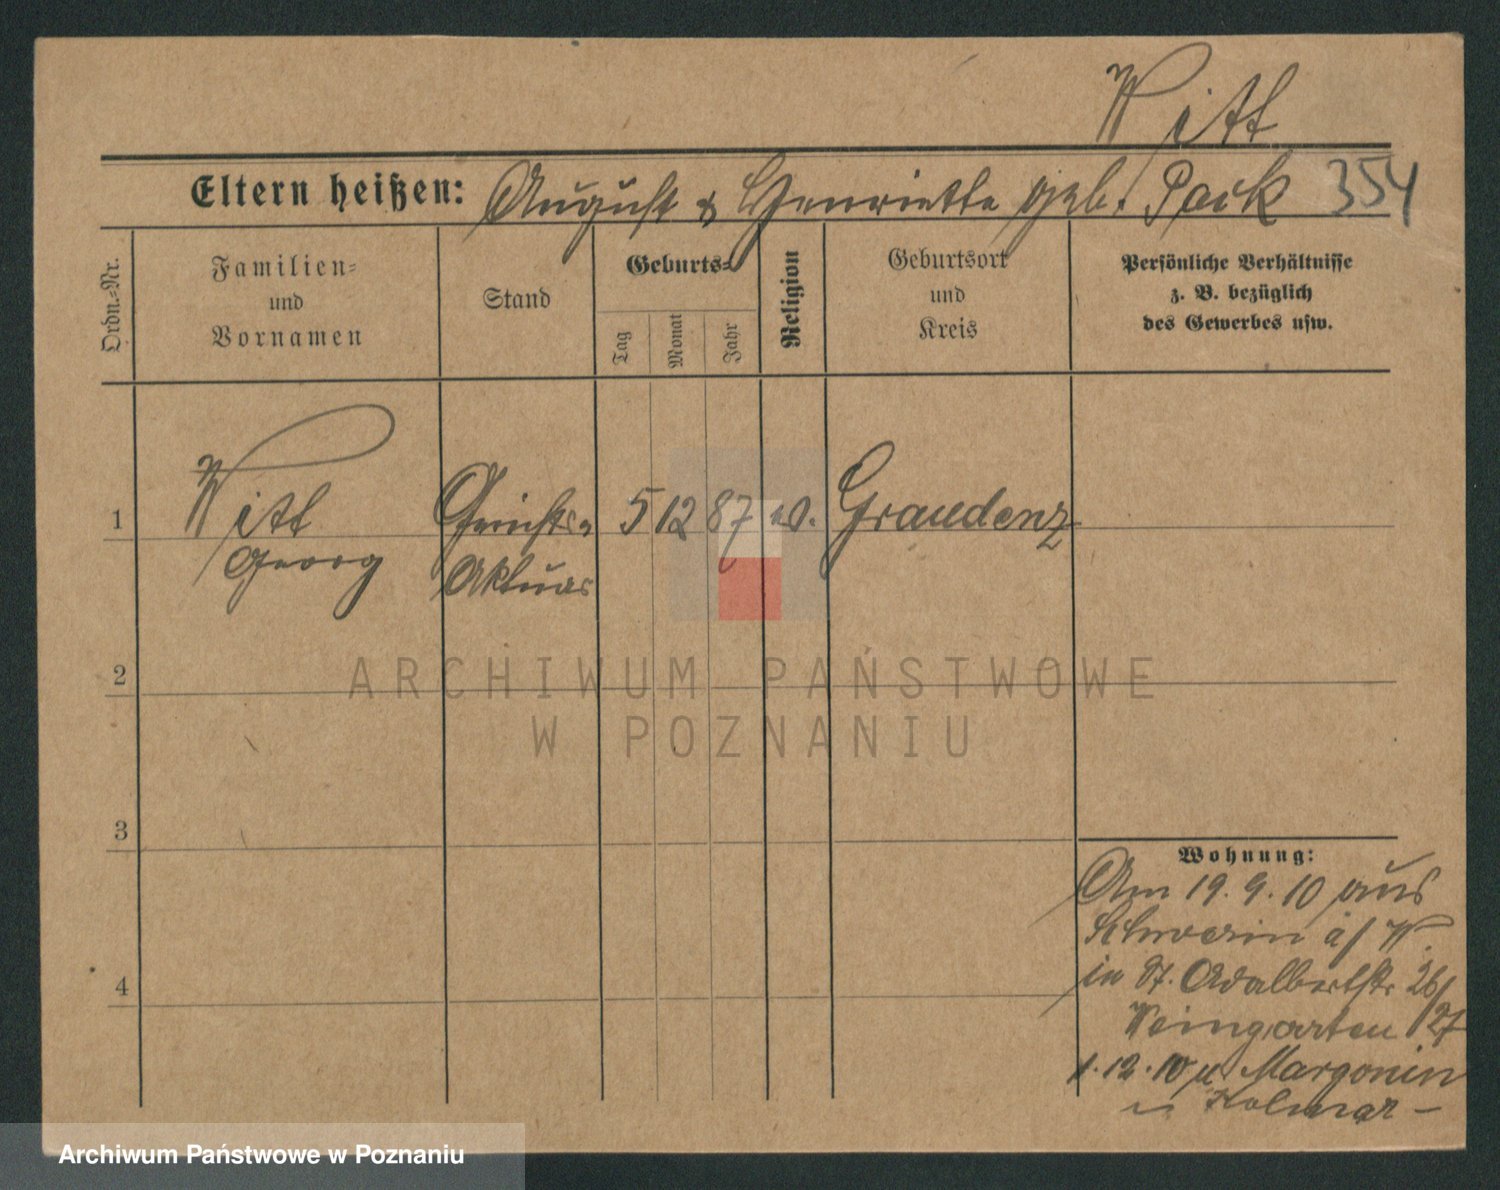 Witt
Eltern heißen: August & Henriette geb. Pack 354
Ordn.=Nr.
Familien=
und
Vornamen
Stand
Geburts=
Tag
Monat
Jahr
Religion
Geburtsort
und
Kreis
Persönliche Verhältnisse
z. B. bezüglich
des Gewerbes usw.
1 Witt Gerichts= 5 12 87 Graudenz
Georg Aktuar
2
ARCHIWUM PAŃSTWOWE
W POZNANIU
3
Wohnung:
Am 19.9.10 aus
Schwerin a/W.
in St. Adalbertstr 26/27
4
Weingarten
1.12.10 n. Margonin
Kolmar
Archiwum Państwowe w Poznaniu